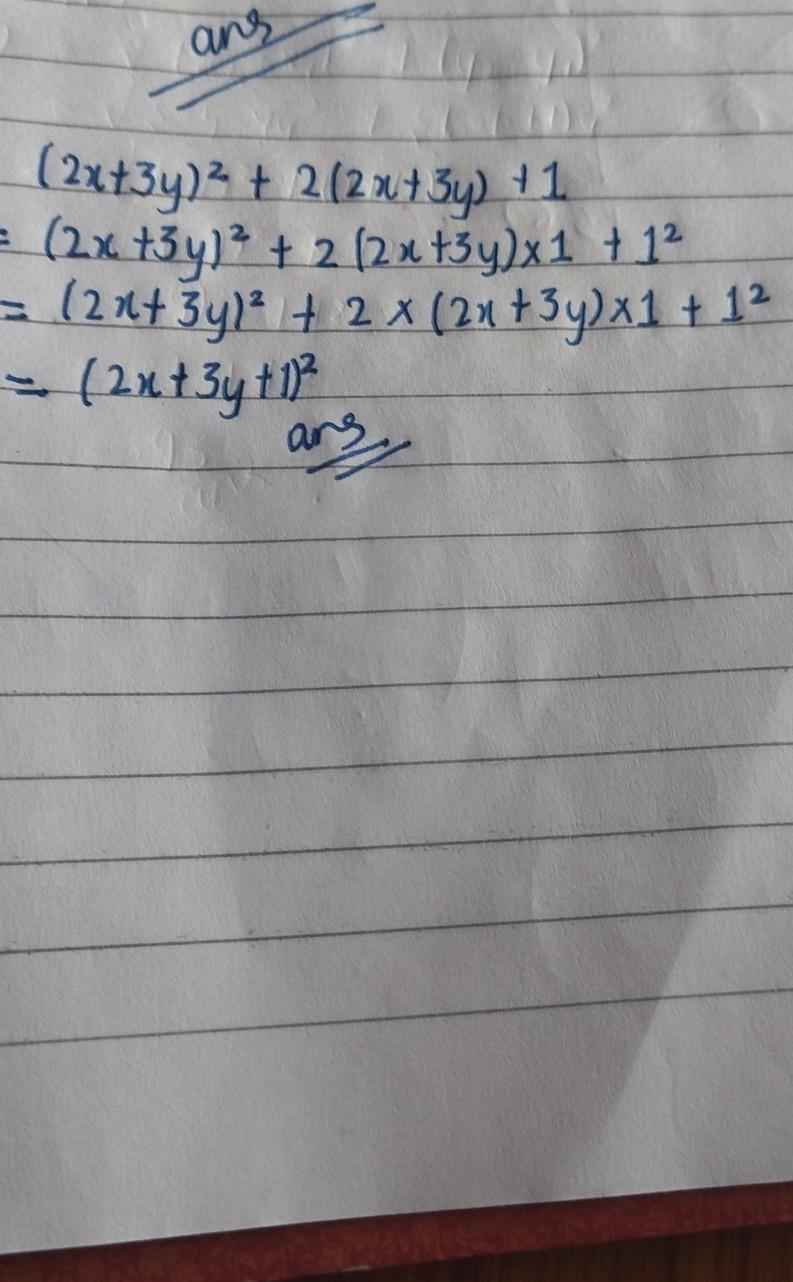 ans
(2x+3y)² + 2(2x+3y) +1
= (2x+3y)² + 2(2x+3y)×1 + 1²
= (2x+3y)² + 2×(2x+3y)×1 + 1²
= (2x+3y+1)²
ans